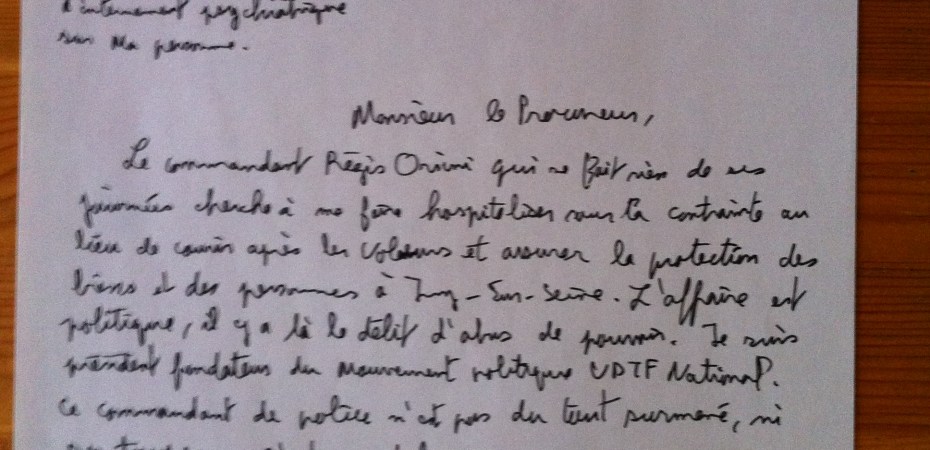 d'internement psychiatrique
sur Ma personne.
Monsieur le Procureur,
Le commandant Régis qui ne fait rien de ses
journées cherche à me faire hospitaliser sous la contrainte au
lieu de courir après les voleurs et assurer la protection des
biens et des personnes à - Sur - Seine. L'affaire est
politique, il y a là le délit d'abus de pouvoir. Je suis
président fondateur du Mouvement politique UDTF National.
Ce commandant de police n'est pas du tout surmené, ni